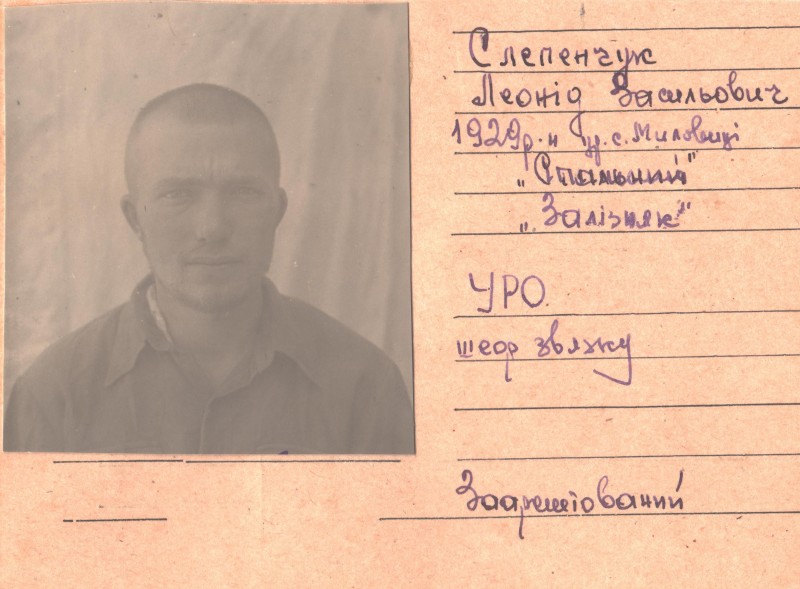 Слепенчук
Леонід Васильович
1929р.н ур.с.Миловиці
"Стальний"
"Залізняк"
УРО.
шеф звязку
Заарештований